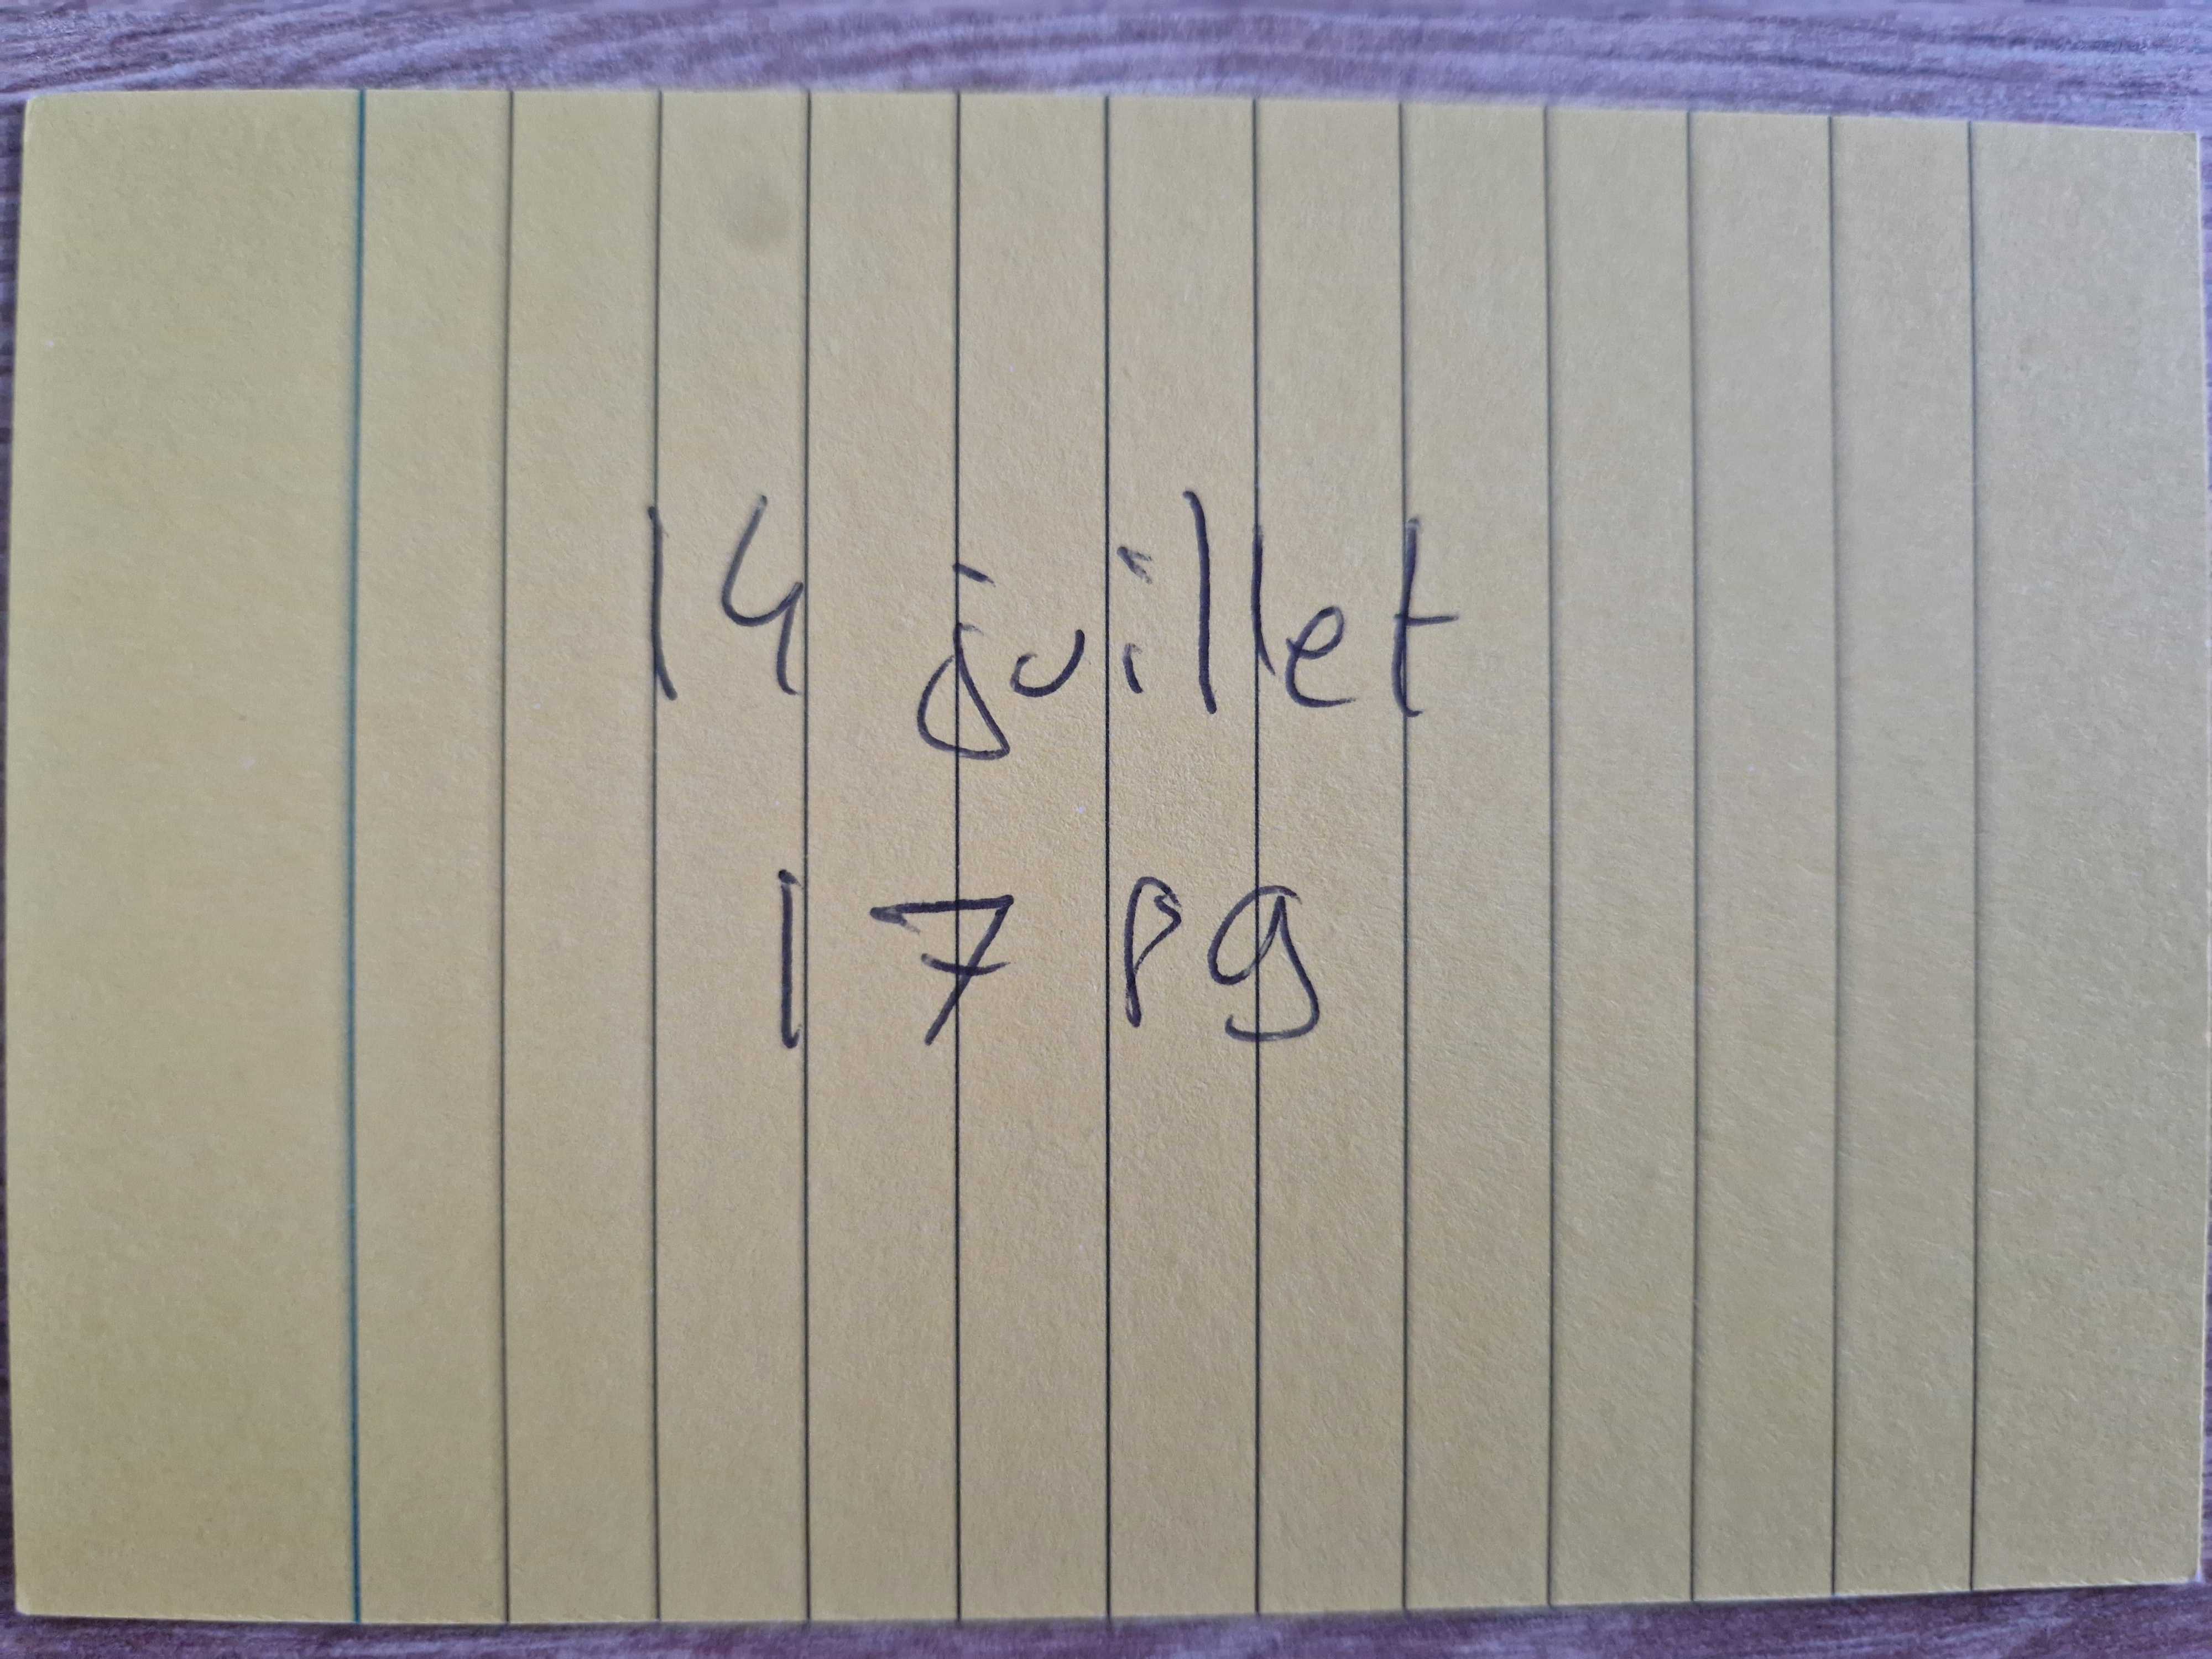 14 juillet
1789